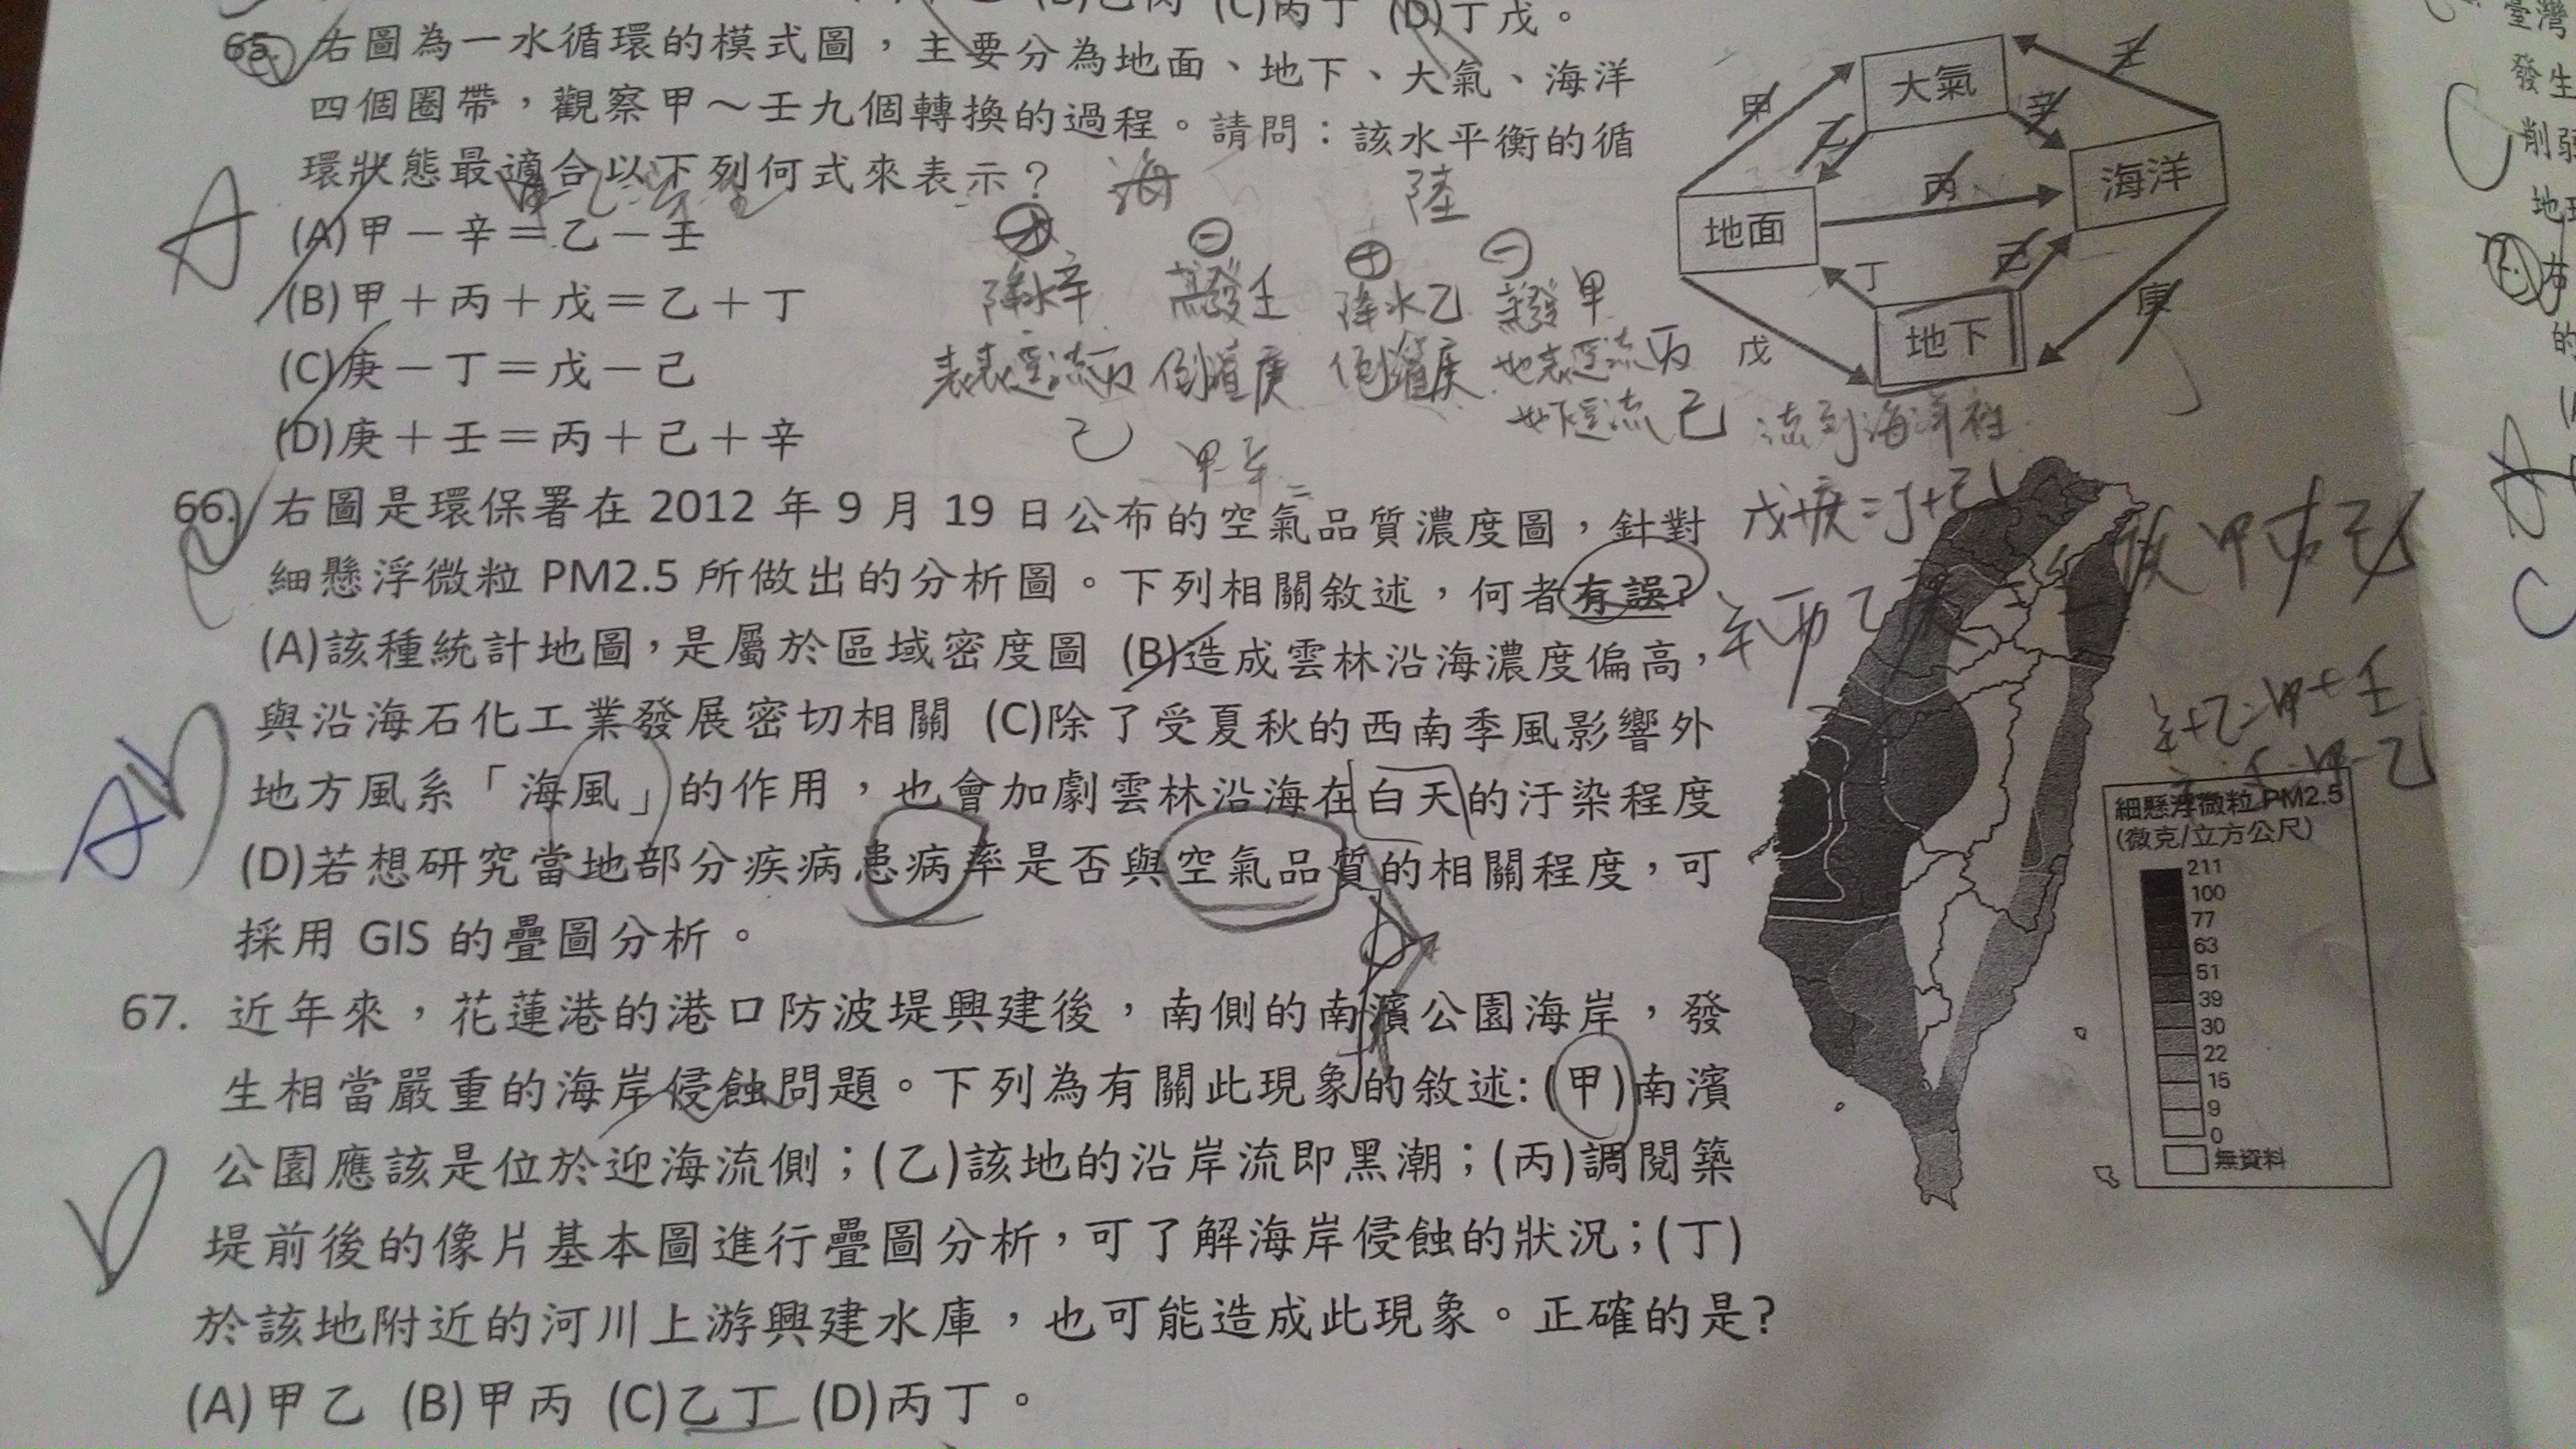 (C)丙丁 (D)丁戊。
65. 右圖為一水循環的模式圖，主要分為地面、地下、大氣、海洋
四個圈帶，觀察甲～壬九個轉換的過程。請問：該水平衡的循
環狀態最適合以下列何式來表示？
(A)甲－辛＝乙－壬
(B)甲＋丙＋戊＝乙＋丁
(C)庚－丁＝戊－己
(D)庚＋壬＝丙＋己＋辛
A
海
陸
降水辛
蒸發壬
降水乙
蒸發甲
倒灌庚
倒灌庚
地表逕流丙
己
地下逕流己
流到海洋裡
大氣
海洋
地面
地下
甲
乙
丙
丁
戊
己
庚
辛
壬
66. 右圖是環保署在 2012 年 9 月 19 日公布的空氣品質濃度圖，針對
細懸浮微粒 PM2.5 所做出的分析圖。下列相關敘述，何者有誤?
(A)該種統計地圖，是屬於區域密度圖 (B)造成雲林沿海濃度偏高，
與沿海石化工業發展密切相關 (C)除了受夏秋的西南季風影響外
地方風系「海風」的作用，也會加劇雲林沿海在白天的汙染程度
(D)若想研究當地部分疾病患病率是否與空氣品質的相關程度，可
採用 GIS 的疊圖分析。
A
戊+庚=丁+己
辛+乙=甲+壬
細懸浮微粒 PM2.5
(微克/立方公尺)
211
100
77
63
51
39
30
22
15
9
0
無資料
67. 近年來，花蓮港的港口防波堤興建後，南側的南濱公園海岸，發
生相當嚴重的海岸侵蝕問題。下列為有關此現象的敘述:(甲)南濱
公園應該是位於迎海流側；(乙)該地的沿岸流即黑潮；(丙)調閱築
堤前後的像片基本圖進行疊圖分析，可了解海岸侵蝕的狀況；(丁)
於該地附近的河川上游興建水庫，也可能造成此現象。正確的是?
(A)甲乙 (B)甲丙 (C)乙丁 (D)丙丁。
臺灣
發生
削弱